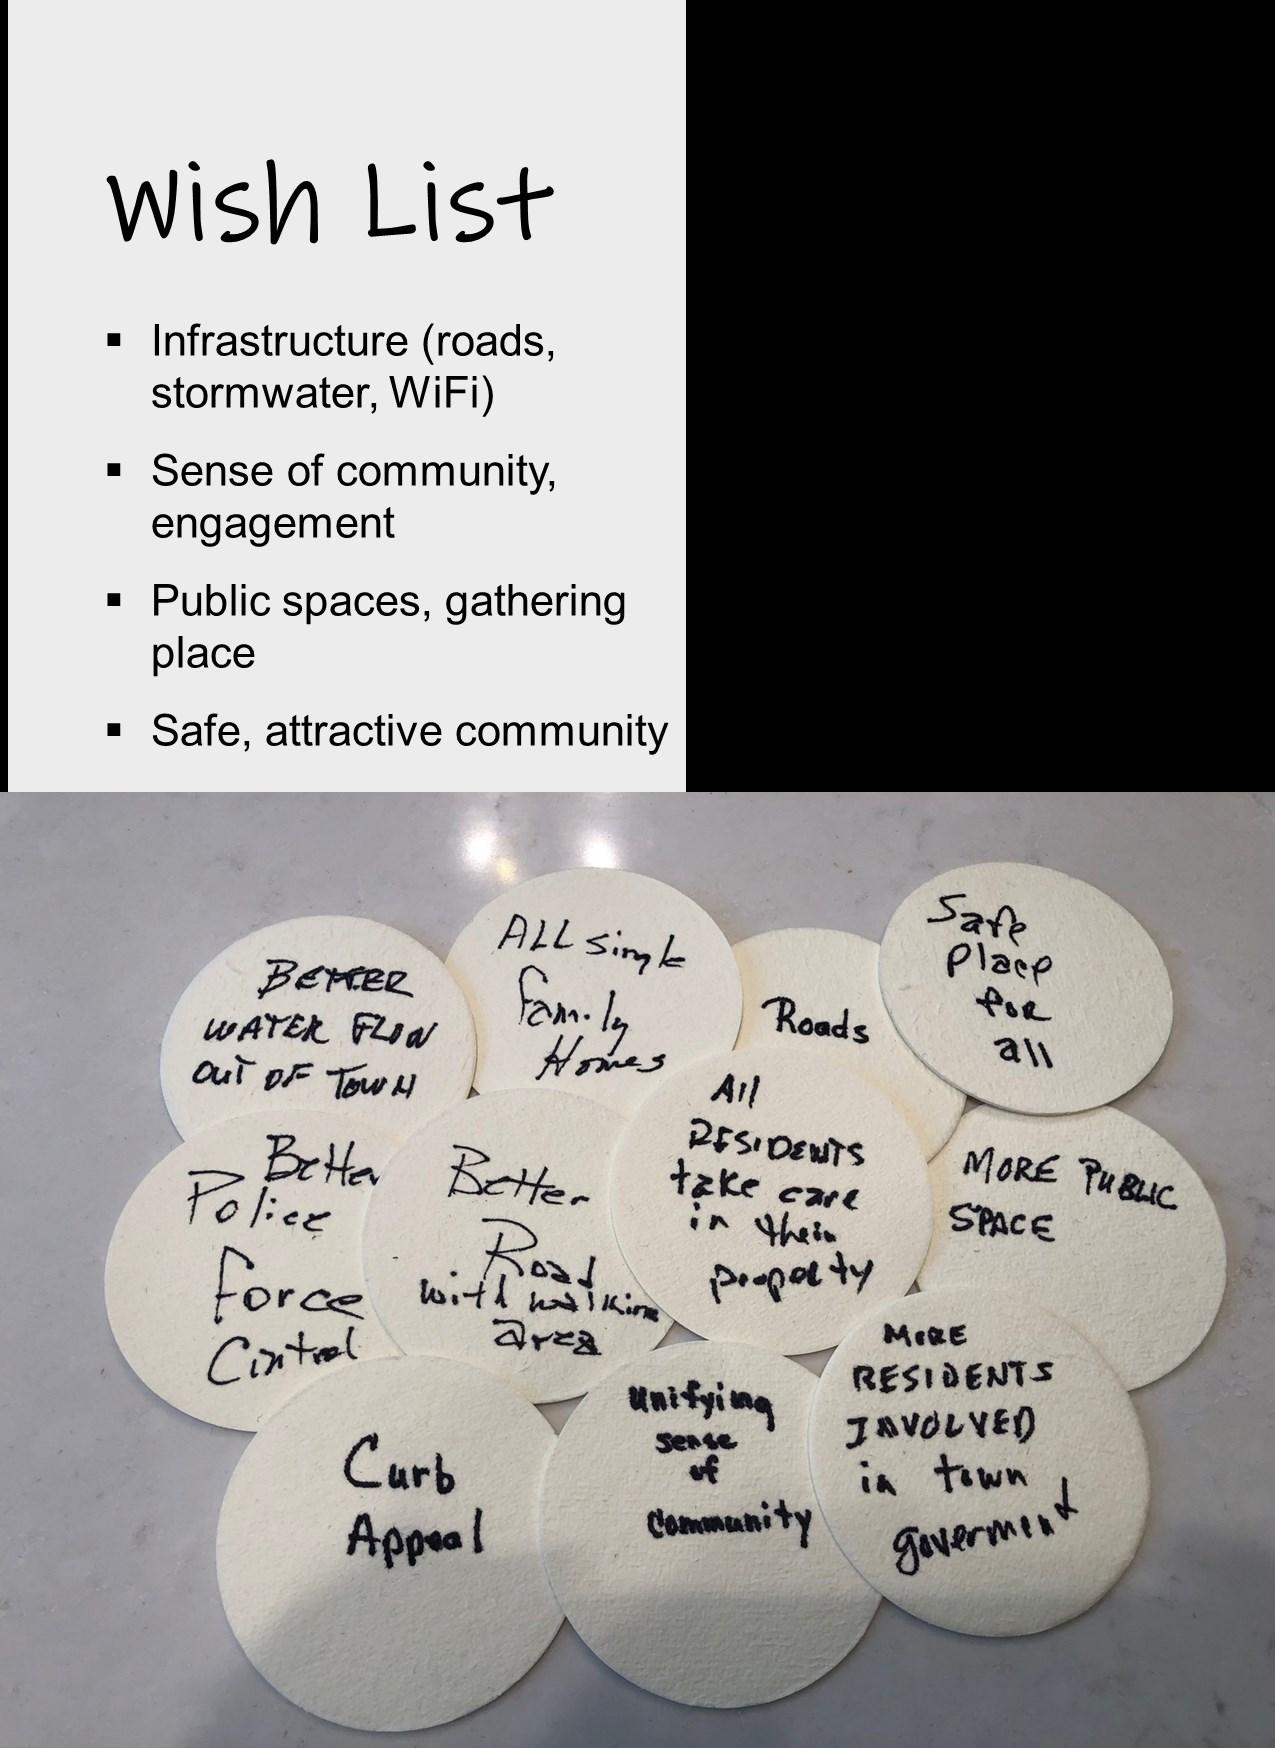 Wish List
▪ Infrastructure (roads,
stormwater, WiFi)
▪ Sense of community,
engagement
▪ Public spaces, gathering
place
▪ Safe, attractive community
BETTER
WATER FLOW
OUT OF TOWN
ALL single
family
Homes
Roads
Safe
Place
for
all
Better
Police
Force
Control
Better
Road
with walking
area
All
RESIDENTS
take care
in their
property
MORE PUBLIC
SPACE
Curb
Appeal
Unifying
sense
of
Community
MORE
RESIDENTS
INVOLVED
in town
goverment